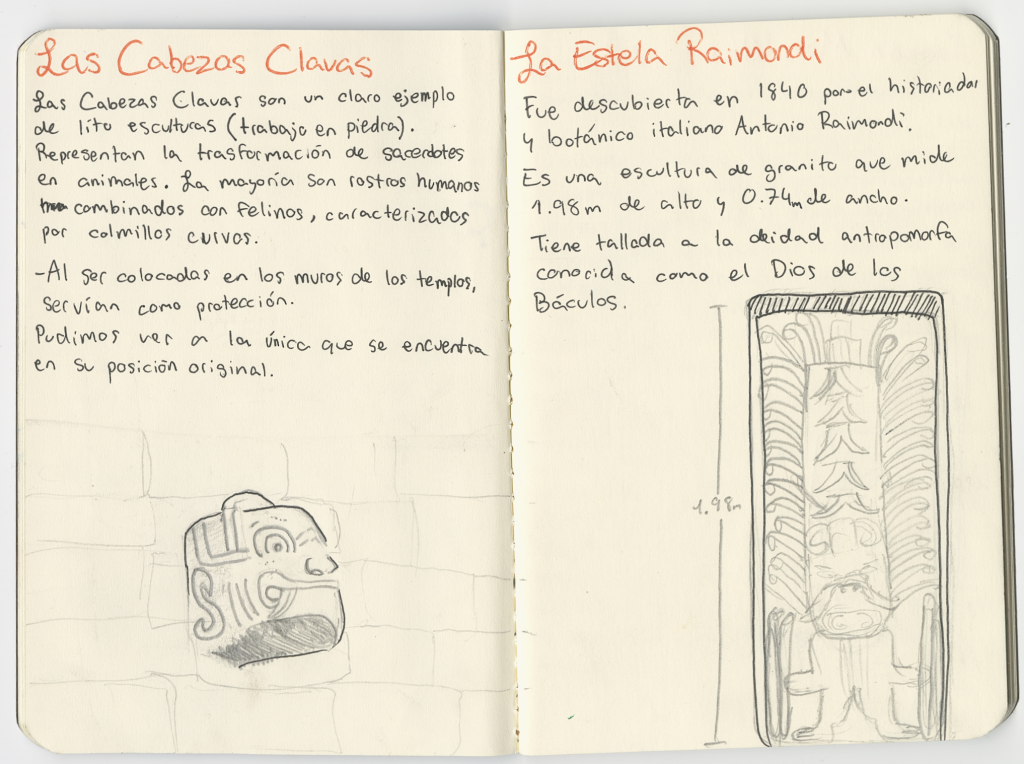 Las Cabezas Clavas
Las Cabezas Clavas son un claro ejemplo
de lito esculturas (trabajo en piedra).
Representan la trasformación de sacerdotes
en animales. La mayoría son rostros humanos
combinados con felinos, caracterizados
por colmillos curvos.
-Al ser colocadas en los muros de los templos,
servían como protección.
Pudimos ver a la única que se encuentra
en su posición original.
La Estela Raimondi
Fue descubierta en 1840 por el historiador
y botánico italiano Antonio Raimondi.
Es una escultura de granito que mide
1.98m de alto y 0.74m de ancho.
Tiene tallada a la deidad antropomorfa
conocida como el Dios de los
Báculos.
1.98m